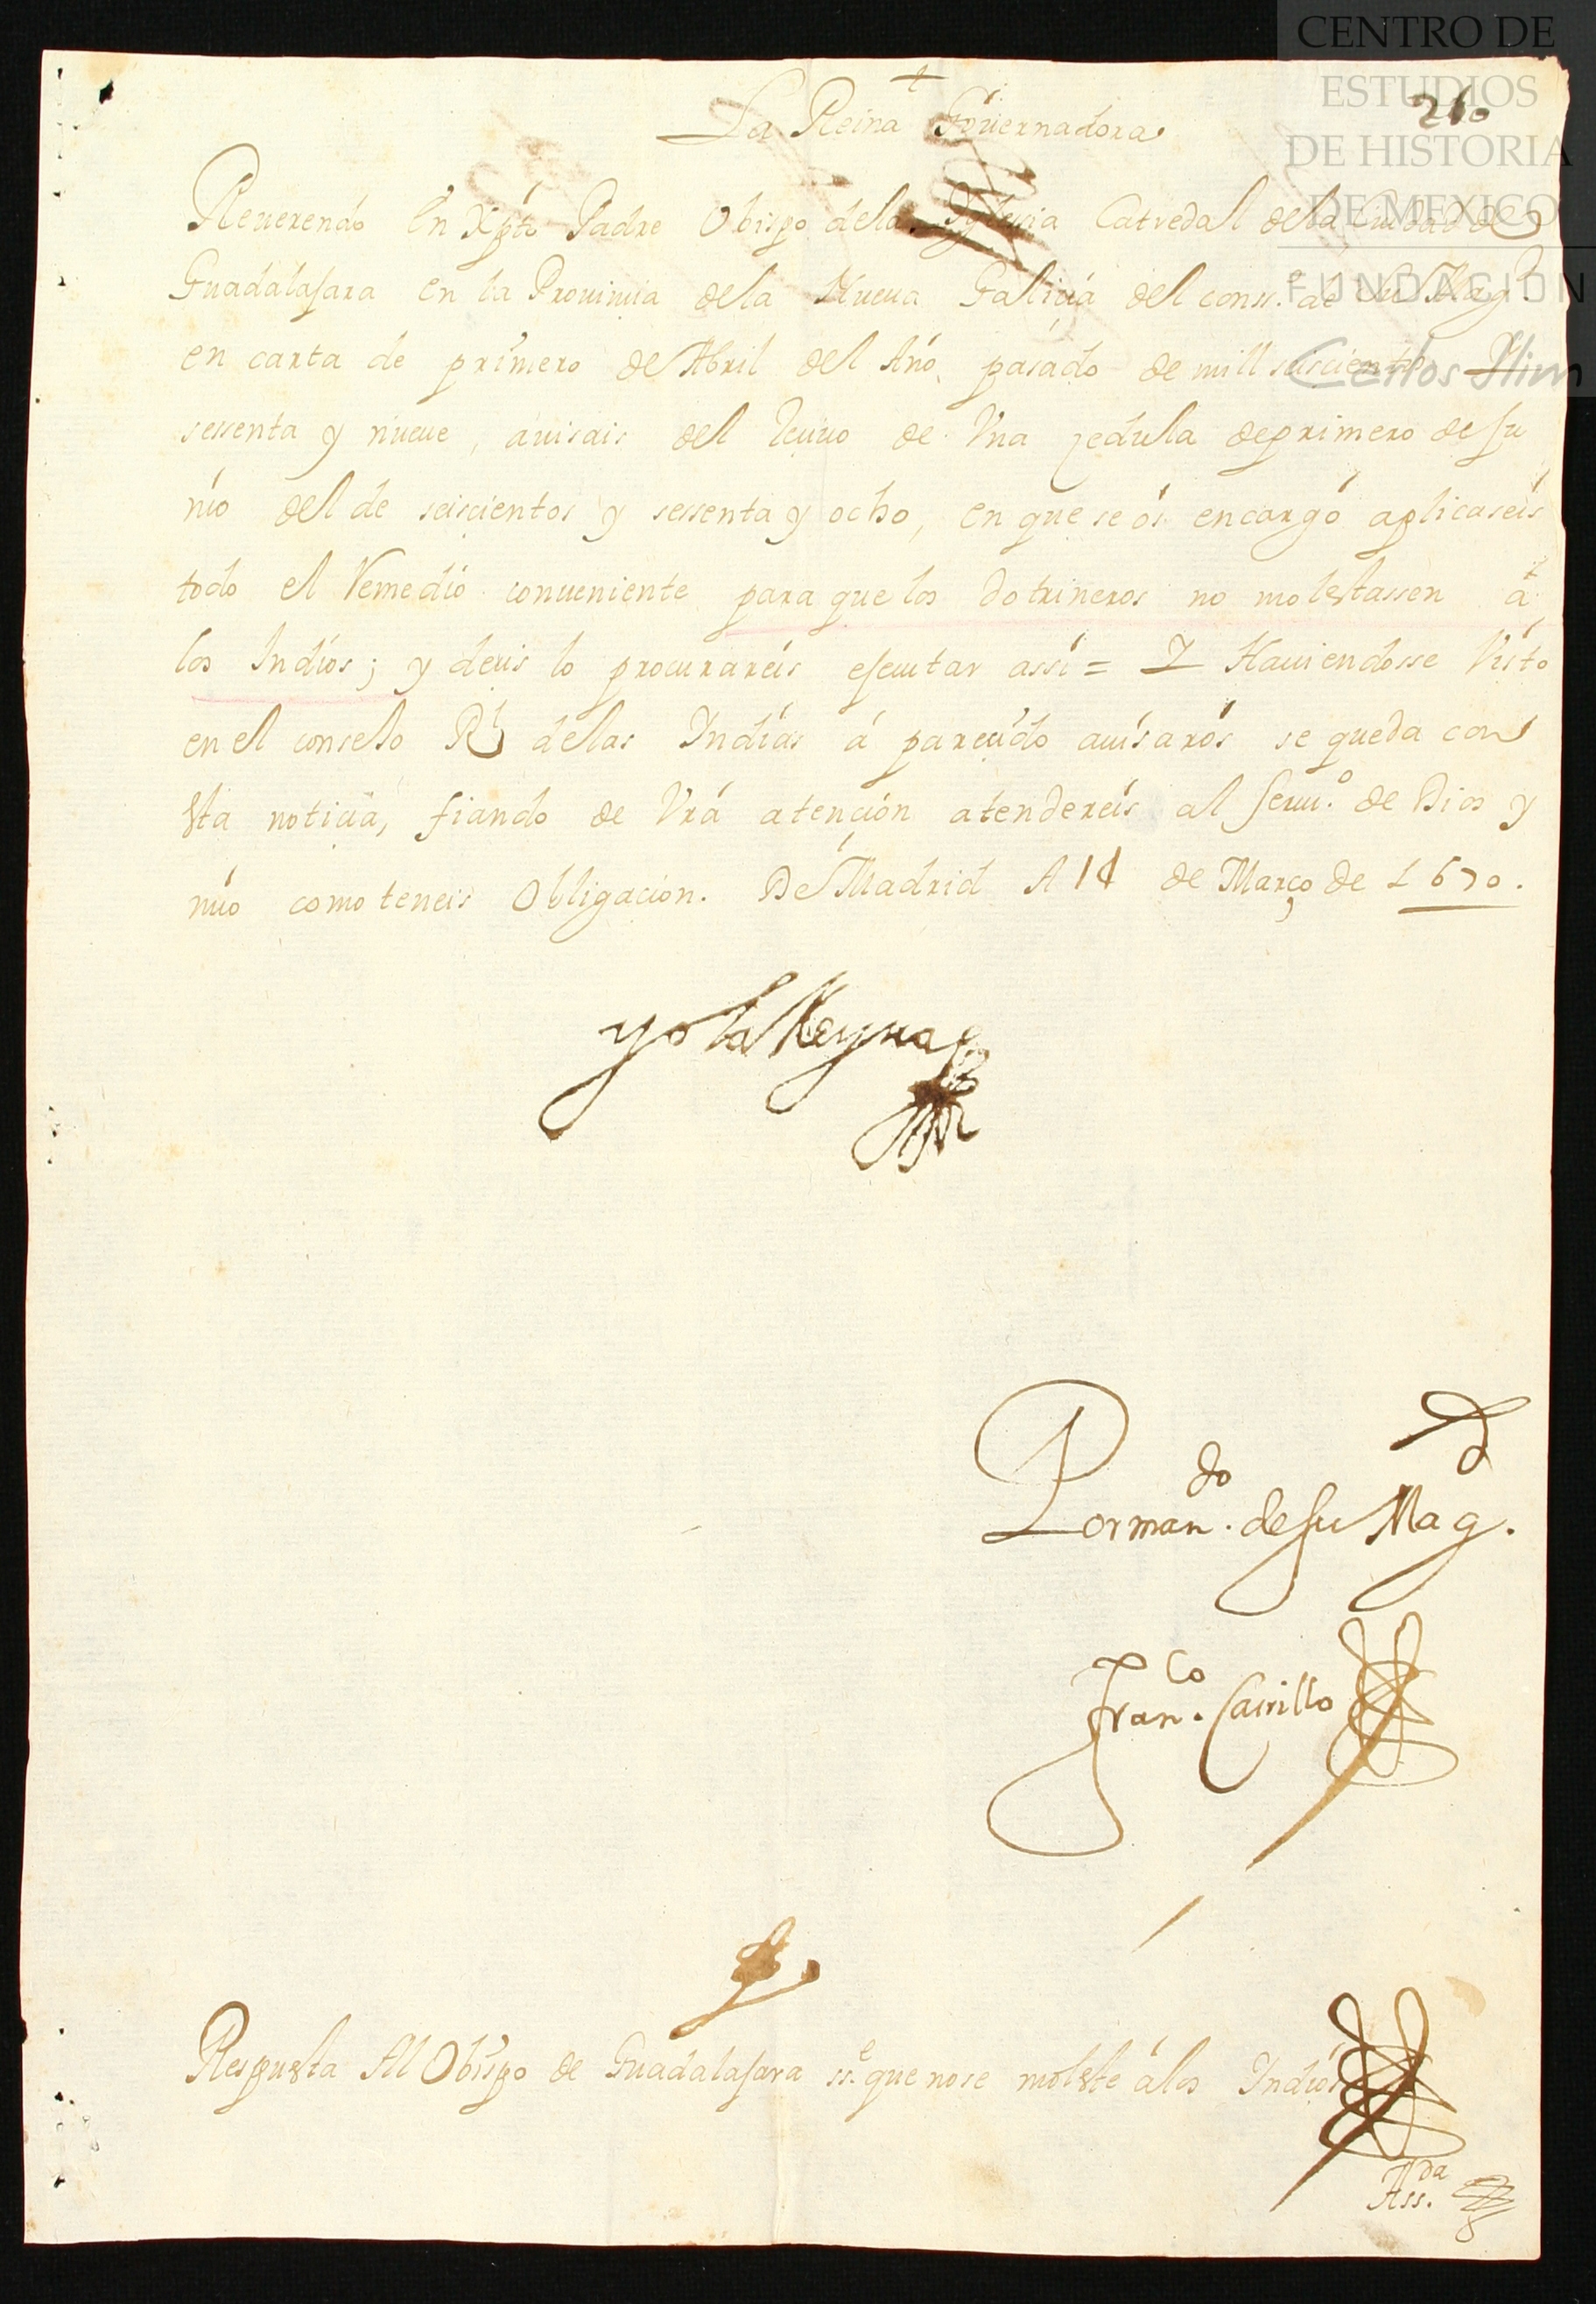 CENTRO DE
ESTUDIOS
DE HISTORIA
DE MEXICO
FUNDACIÓN
Carlos Slim
210
La Reina Gouernadora
Reuerendo en Xpto Padre Obispo dela Yglesia Catredal dela Ciudad de
Guadalajara en la Prouincia dela Nueua Galicia del conss.º de Su Mag.d
en carta de primero de Abril del Año pasado de mill seiscientos y
sessenta y nueue, auisais del reciuo de Vna zedula deprimero deJu
nio del de seiscientos y sessenta y ocho, en que se os encargó aplicaseis
todo el remedio conueniente para que los dotrineros no molestassen á
los Indios; y decis lo procurareis ejecutar assi = Y Hauiendosse Visto
en el consejo Rl delas Indias á parecido auisaros se queda con
esta noticia, fiando de Vra atención atendereis al seru.º de Dios y
mio como teneis obligación. De Madrid A 14 de Março de 1670.
yo la Reyna
Por man.do de su Mag.d
Fran.co Carrillo
Respuesta Al Obispo de Guadalajara ss.e que no se moleste á los Indios
Ass.da